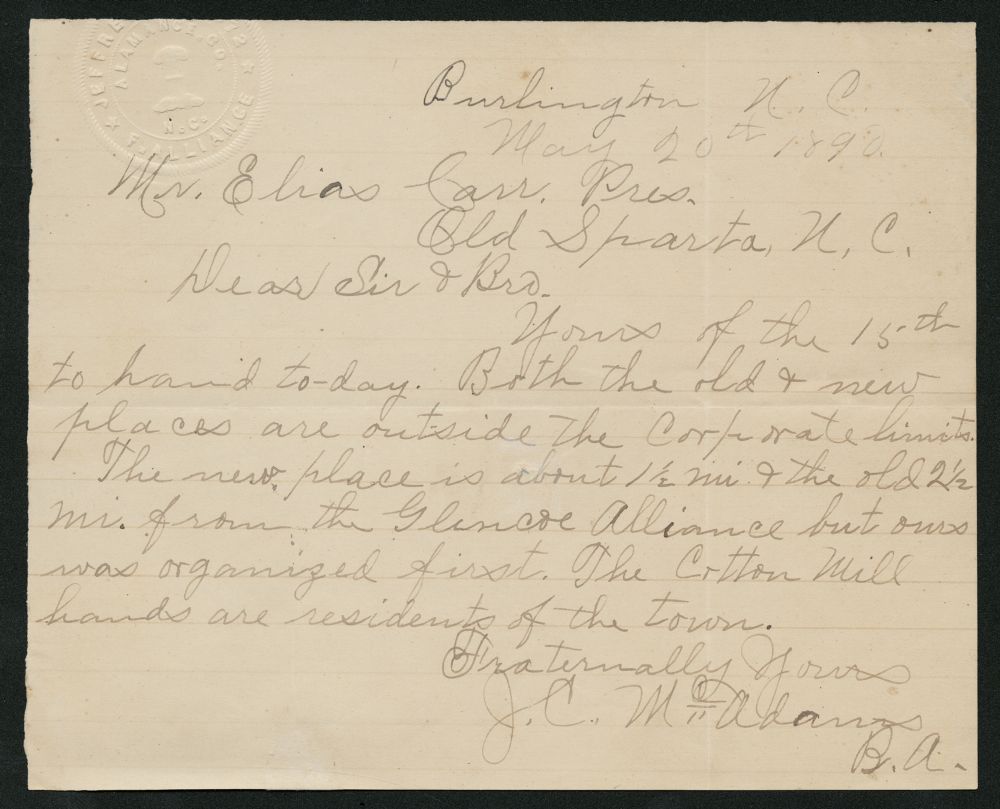 JEFFRE 72 ★
ALAMANCE, CO.
N.C.
★ F. ALLIANCE
Burlington N. C.
May 20th 1890.
Mr. Elias Carr. Pres.
Old Sparta, N. C.
Dear Sir & Bro.
Yours of the 15th
to hand to-day. Both the old & new
places are outside the Corporate limits.
The new place is about 1½ mi & the old 2½
mi. from the Glencoe Alliance but ours
was organized first. The Cotton Mill
hands are residents of the town.
Fraternally Yours
J. C. McAdams
B. A.